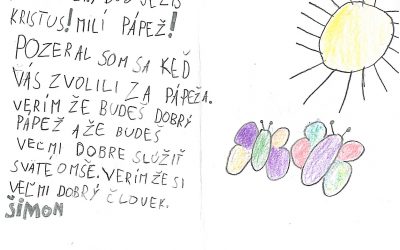 BUĎ JEŽIŠ
KRISTUS! MILÍ PÁPEŽ!
POZERAL SOM SA KEĎ
VÁS ZVOLILI ZA PÁPEŽA.
VERÍM ŽE BUDEŠ DOBRÝ
PÁPEŽ A ŽE BUDEŠ
VEĽMI DOBRE SLÚŽIŤ
SVÄTÉ OMŠE. VERÍM ŽE SI
VEĽMI DOBRÝ ČLOVEK.
ŠIMON